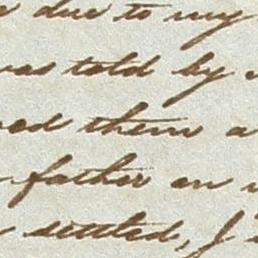 due to my
was told by
ed them a
father on
settled, I